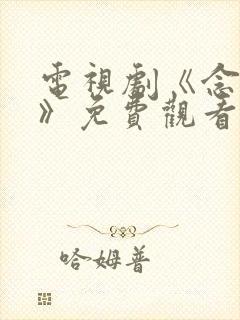 電視劇《念
》免費觀看
哈姆普